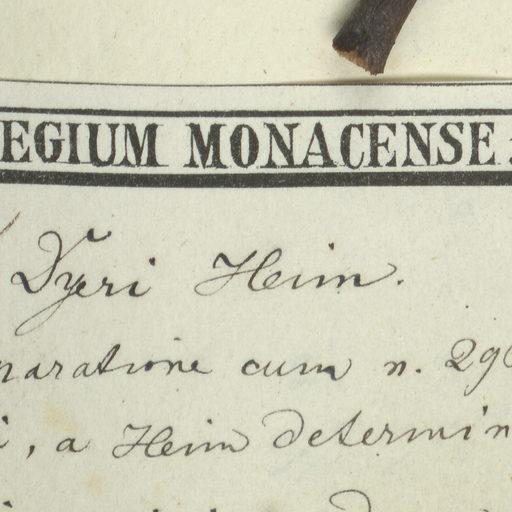 EGIUM MONACENSE
Dyeri Heim.
naratione cum n. 290
i, a Heim determin